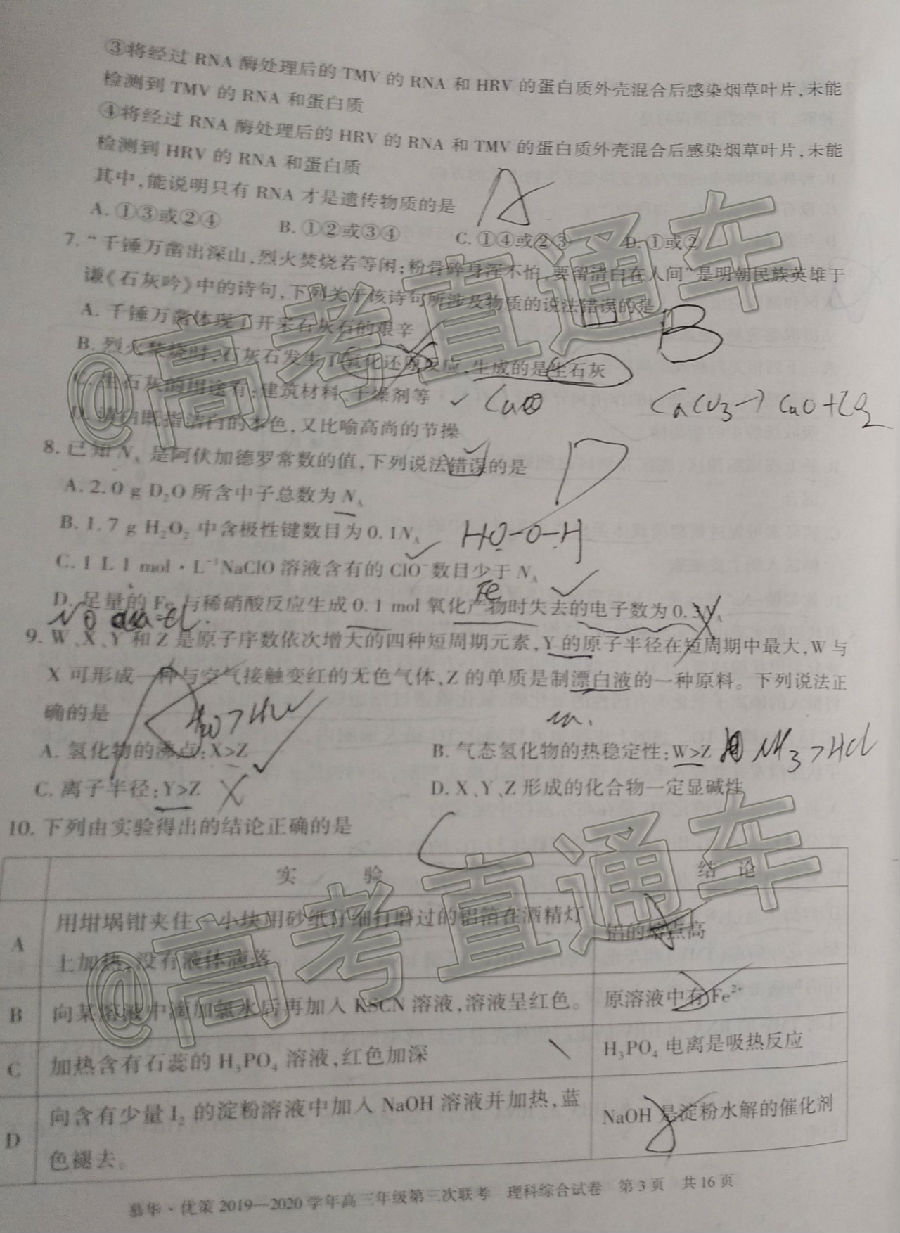 ③将经过 RNA 酶处理后的 TMV 的 RNA 和 HRV 的蛋白质外壳混合后感染烟草叶片,未能
检测到 TMV 的 RNA 和蛋白质
④将经过 RNA 酶处理后的 HRV 的 RNA 和 TMV 的蛋白质外壳混合后感染烟草叶片,未能
检测到 HRV 的 RNA 和蛋白质
其中,能说明只有 RNA 才是遗传物质的是
A
A. ①③或②④ B. ①②或③④ C. ①④或②③ D. ①或②
7. “千锤万凿出深山,烈火焚烧若等闲;粉骨碎身浑不怕,要留清白在人间”是明朝民族英雄于
谦《石灰吟》中的诗句,下列关于该诗句所涉及物质的说法错误的是
B
A. 千锤万凿体现了开采石灰石的艰辛
B. 烈火焚烧时,石灰石发生了氧化还原反应,生成的是生石灰
C. 生石灰的用途有:建筑材料、干燥剂等
CaO CaCO3→CaO+CO2
D. 清白既指洁白的本色,又比喻高尚的节操
8. 已知 N_A 是阿伏加德罗常数的值,下列说法错误的是
D
A. 2.0 g D₂O 所含中子总数为 N_A
B. 1.7 g H₂O₂ 中含极性键数目为 0.1N_A
HO-O-H
C. 1 L 1 mol·L⁻¹NaClO 溶液含有的 ClO⁻数目少于 N_A
Fe
D. 足量的 Fe 与稀硝酸反应生成 0.1 mol 氧化产物时失去的电子数为 0.3N_A
9. W、X、Y 和 Z 是原子序数依次增大的四种短周期元素,Y 的原子半径在短周期中最大,W 与
X 可形成一种与空气接触变红的无色气体,Z 的单质是制漂白液的一种原料。下列说法正
确的是
A. 氢化物的沸点:X>Z B. 气态氢化物的热稳定性:W>Z
NH3>HCl
C. 离子半径:Y>Z D. X、Y、Z 形成的化合物一定显碱性
10. 下列由实验得出的结论正确的是
C
实 验 结 论
A 用坩埚钳夹住一小块用砂纸仔细打磨过的铝箔在酒精灯 铝的熔点高
上加热,没有液体滴落
B 向某溶液中滴加氯水后再加入 KSCN 溶液,溶液呈红色。 原溶液中有 Fe²⁺
C 加热含有石蕊的 H₃PO₄ 溶液,红色加深 H₃PO₄ 电离是吸热反应
D 向含有少量 I₂ 的淀粉溶液中加入 NaOH 溶液并加热,蓝 NaOH 是淀粉水解的催化剂
色褪去。
慕华·优策 2019—2020 学年高三年级第三次联考 理科综合试卷 第 3 页 共 16 页
@高考直通车
@高考直通车